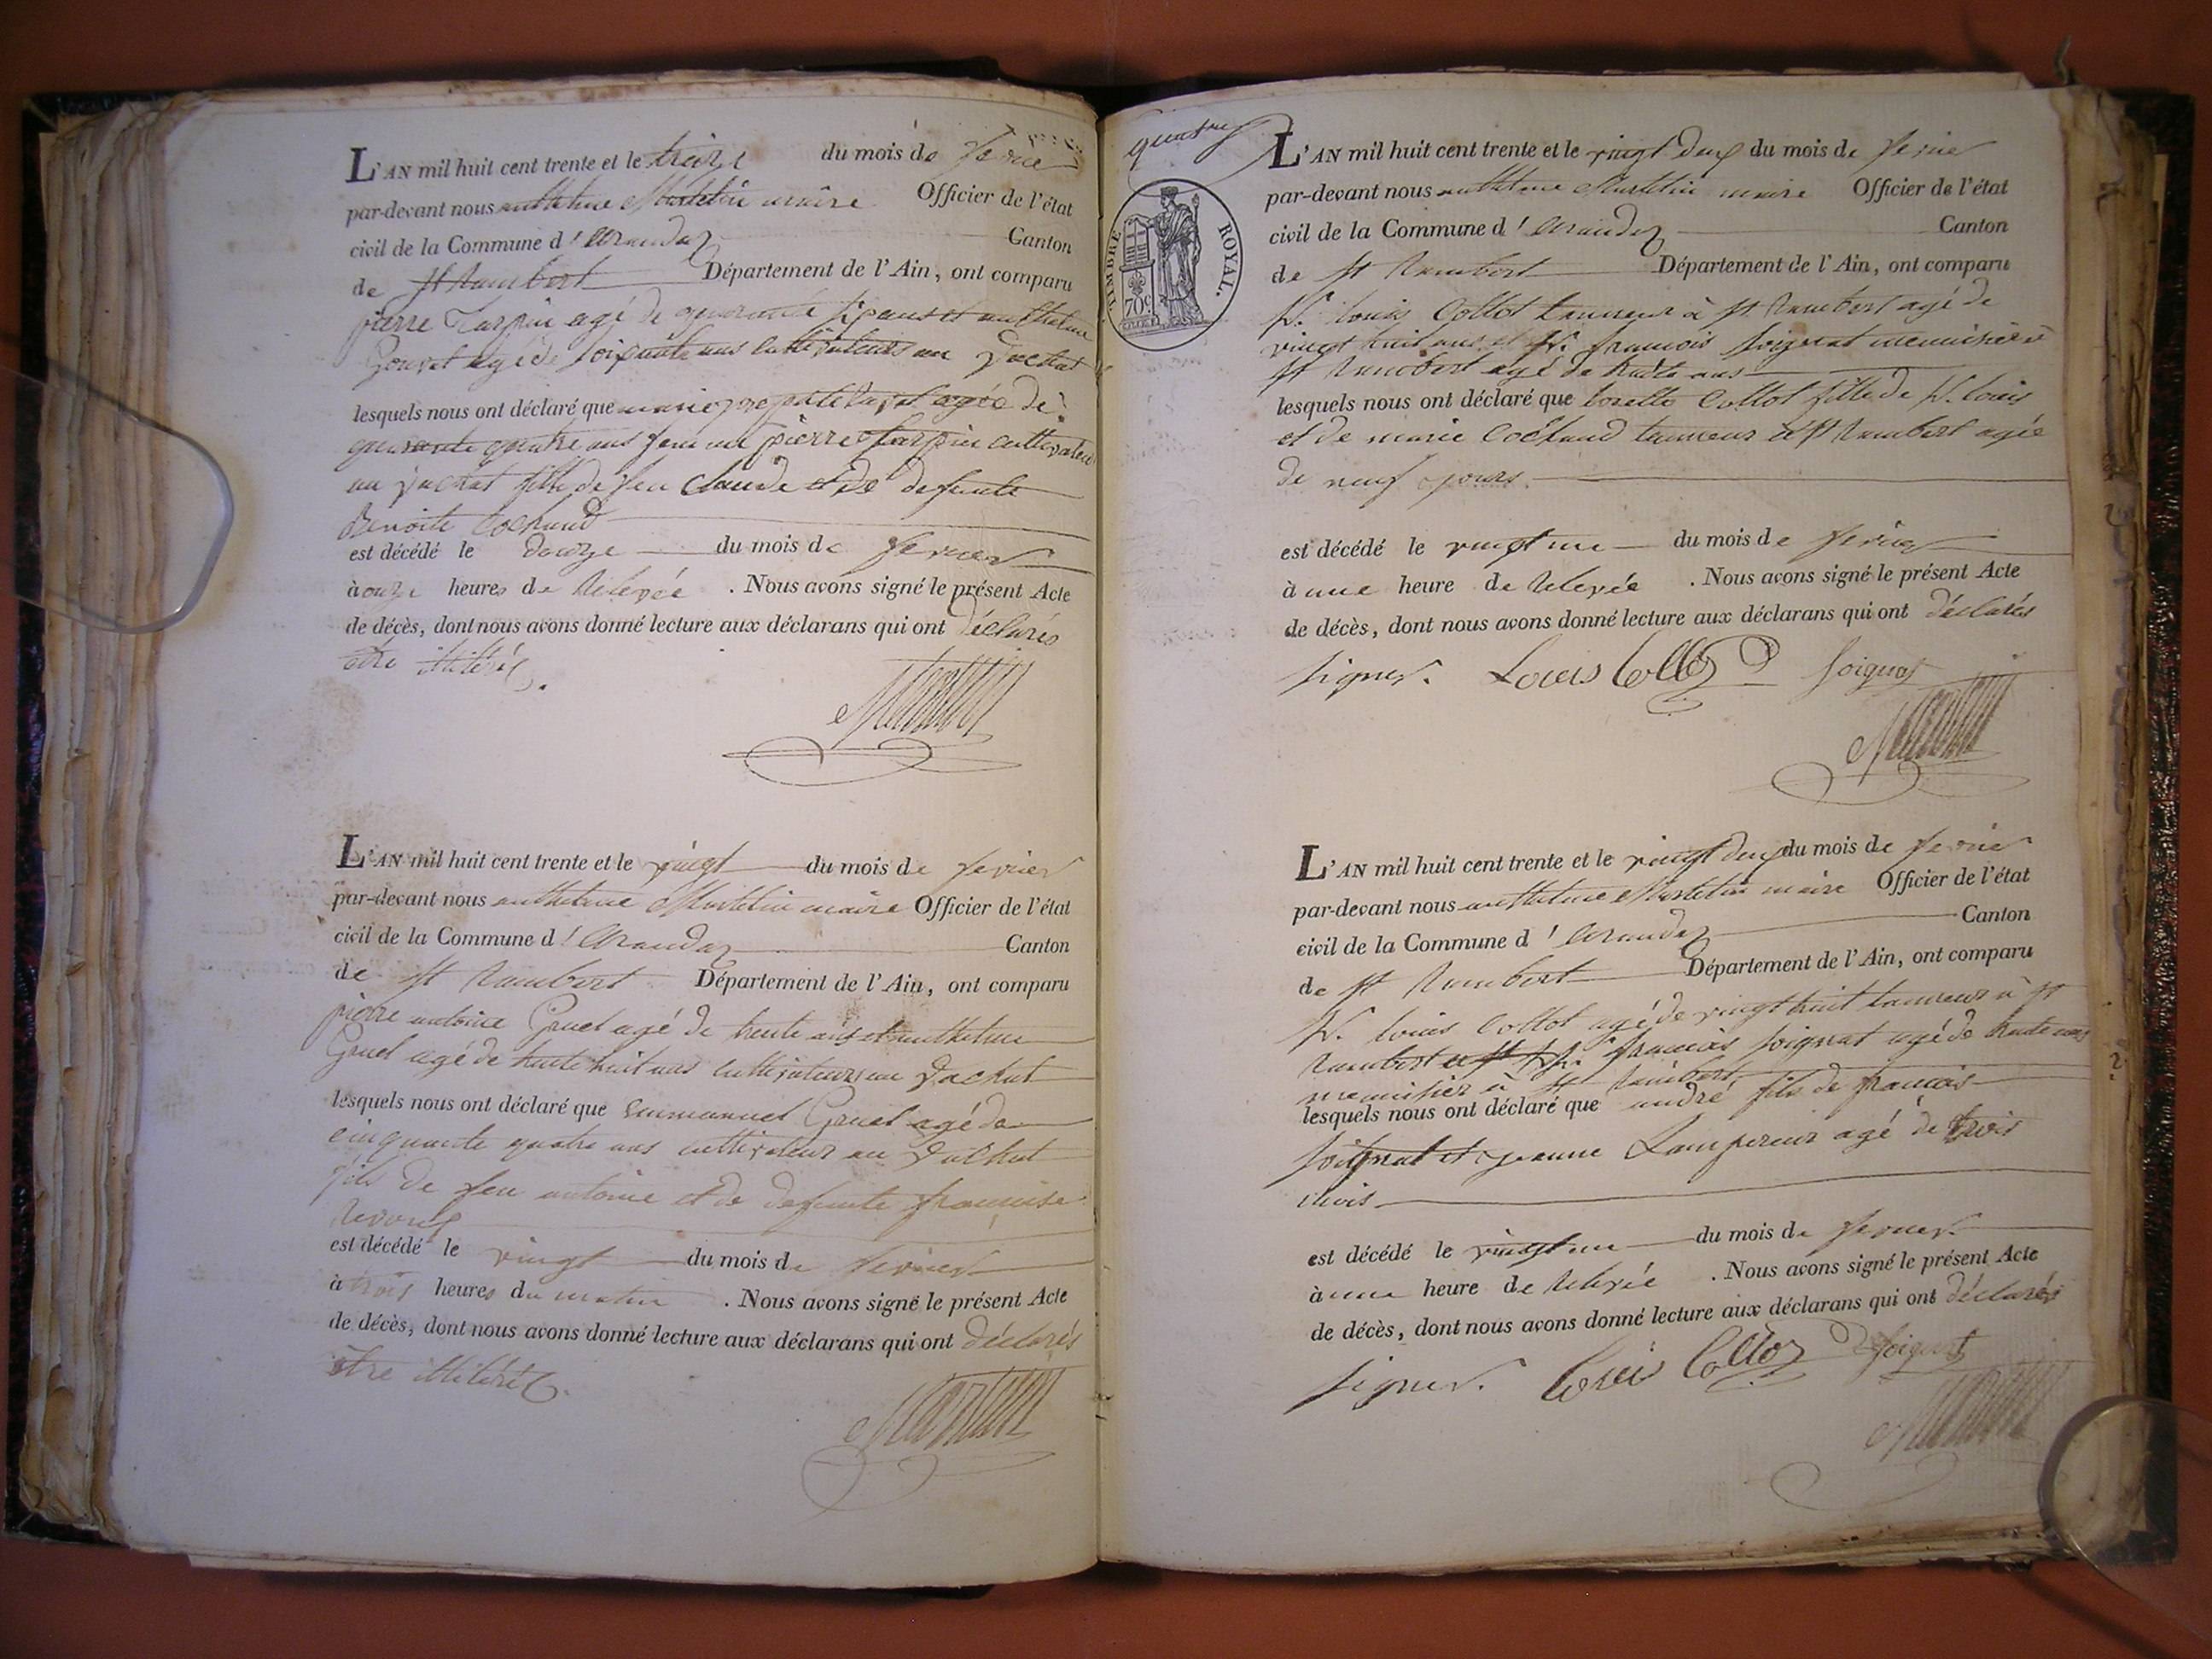 L'AN mil huit cent trente et le treize du mois de fevrier
par-devant nous anthelme Martelin maire Officier de l'état
civil de la Commune d'arandaz Canton
de St Rambert Département de l'Ain, ont comparu
pierre Tarpin agé de quarante six ans et anthelme
agé de soixante ans cultivateurs au Vachat
lesquels nous ont déclaré que marie agée de
quarante quatre ans femme pierre Tarpin cultivateur
au Vachat fille de feu Claude et de defunte
Benoite Cochaud
est décédé le douze du mois de fevrier
à onze heures de relevée . Nous avons signé le présent Acte
de décès, dont nous avons donné lecture aux déclarans qui ont déclarés
être illitérés.
Martelin
L'AN mil huit cent trente et le vingt du mois de fevrier
par-devant nous anthelme Martelin maire Officier de l'état
civil de la Commune d'arandaz Canton
de St Rambert Département de l'Ain, ont comparu
pierre antoine Gruel agé de trente ans et anthelme
Gruel agé de trente huit ans cultivateurs au Vachat
lesquels nous ont déclaré que emmanuel Gruel agé de
cinquante quatre ans cultivateur au Vachat
fils de feu antoine et de defunte francoise
est décédé le vingt du mois de fevrier
à trois heures du matin . Nous avons signé le présent Acte
de décès, dont nous avons donné lecture aux déclarans qui ont déclarés
être illitérés.
Martelin
quatre
TIMBRE ROYAL.
70c
L'AN mil huit cent trente et le vingt deux du mois de fevrier
par-devant nous anthelme Martelin maire Officier de l'état
civil de la Commune d'arandaz Canton
de St Rambert Département de l'Ain, ont comparu
Sr. louis Collot tanneur à St Rambert agé de
vingt huit ans et Sr. francois soignat menuisier à
St Rambert agé de trente ans
lesquels nous ont déclaré que Collot fille de Sr. louis
et de marie Cochaud tanneur à St Rambert agée
de neuf jours
est décédé le vingt un du mois de fevrier
à une heure de relevée . Nous avons signé le présent Acte
de décès, dont nous avons donné lecture aux déclarans qui ont déclarés
signer. Louis Collot Soignat
Martelin
L'AN mil huit cent trente et le vingt deux du mois de fevrier
par-devant nous anthelme Martelin maire Officier de l'état
civil de la Commune d'arandaz Canton
de St Rambert Département de l'Ain, ont comparu
Sr. louis Collot agé de vingt huit tanneur à St
Rambert et Sr. francois soignat agé de trente ans
menuisier à St Rambert
lesquels nous ont déclaré que andré fils de francois
soignat et jeanne Lampereur agé de trois
mois
est décédé le vingt un du mois de fevrier
à une heure de relevée . Nous avons signé le présent Acte
de décès, dont nous avons donné lecture aux déclarans qui ont déclarés
signer. Louis Collot Soignat
Martelin